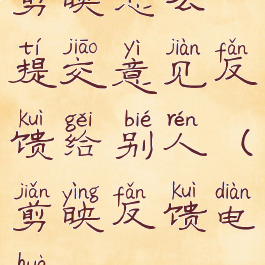 剪映怎么
tí jiāo yì jiàn fǎn
提交意见反
kuì gěi bié rén
馈给别人（
jiǎn yìng fǎn kuì diàn
剪映反馈电
huà